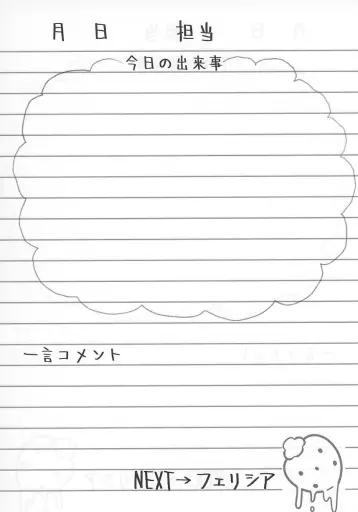 月 日 担当
今日の出来事
一言コメント
NEXT→フェリシア